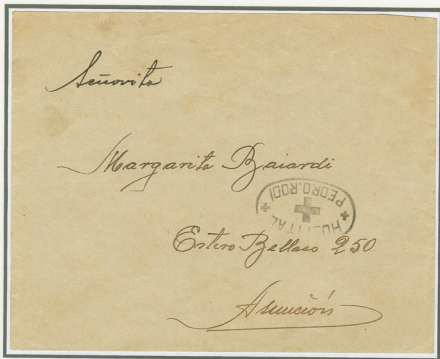 Señorita
Margarita Baiardi
HOSPITAL
PEDRO.RODI
Estero Bellaco 250
Asunción